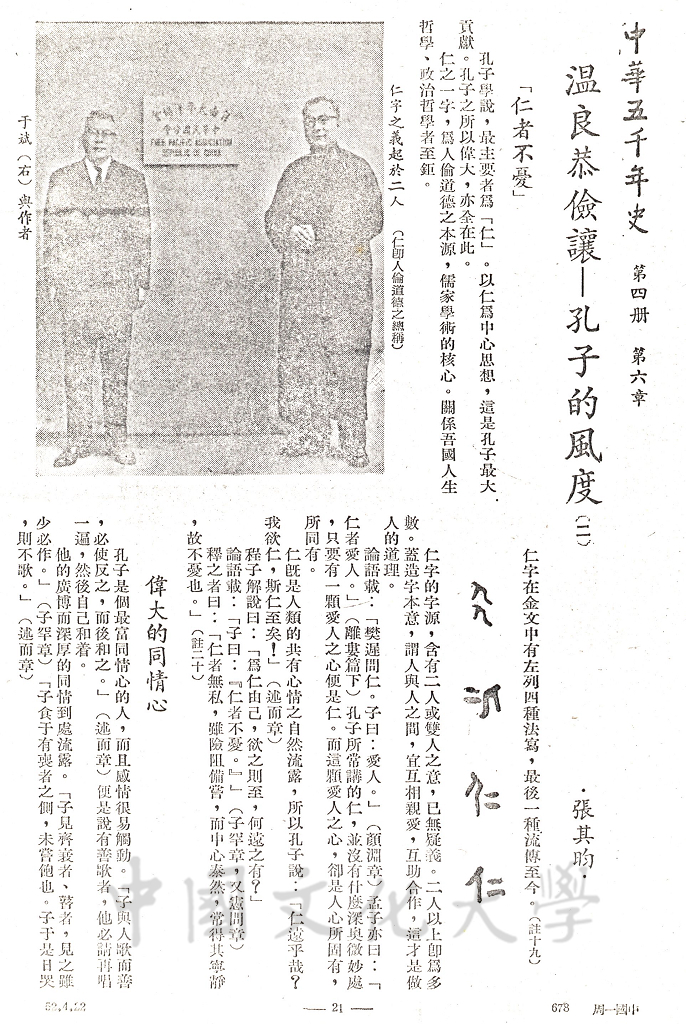 中華五千年史　第四册　第六章
温良恭儉讓—孔子的風度(二)
·張其昀·
「仁者不憂」
孔子學說，最主要者爲「仁」。以仁爲中心思想，這是孔子最大
貢獻。孔子之所以偉大，亦全在此。
仁之一字，爲人倫道德之本源，儒家學術的核心。關係吾國人生
哲學、政治哲學者至鉅。
仁字之義起於二人　（仁卽人倫道德之總稱）
FREE PACIFIC ASSOCIATION
REPUBLIC OF CHINA
于斌（右）與作者
仁字在金文中有左列四種法寫，最後一種流傳至今。（註十九）
仁 仁
仁字的字源，含有二人或雙人之意，已無疑義。二人以上卽爲多
數。蓋造字本意，謂人與人之間，宜互相親愛，互助合作，這才是做
人的道理。
論語載：「樊遲問仁。子曰：愛人。」（顏淵章）孟子亦曰：「
仁者愛人。」（離婁篇下）孔子所常講的仁，並沒有什麼深奥微妙處
，只要有一顆愛人之心便是仁。而這顆愛人之心，卻是人心所固有，
所同有。
仁旣是人類的共有心情之自然流露，所以孔子說：「仁遠乎哉？
我欲仁，斯仁至矣！」（述而章）
程子解說曰：「爲仁由己，欲之則至，何遠之有？」
論語載：「子曰：『仁者不憂。』」（子罕章，又憲問章）
釋之者曰：「仁者無私，雖險阻備嘗，而中心泰然，常得其寧靜
，故不憂也。」（註二十）
偉大的同情心
孔子是個最富同情心的人，而且感情很易觸動。「子與人歌而善
，必使反之，而後和之。」（述而章）便是說有善歌者，他必請再唱
一遍，然後自己和着。
他的廣博而深厚的同情到處流露。「子見齊衰者、瞽者，見之雖
少必作。」（子罕章）「子食于有喪者之側，未嘗飽也。子于是日哭
，則不歌。」（述而章）
中國文化大學
52.4.22
— 21 —
678
周一國中